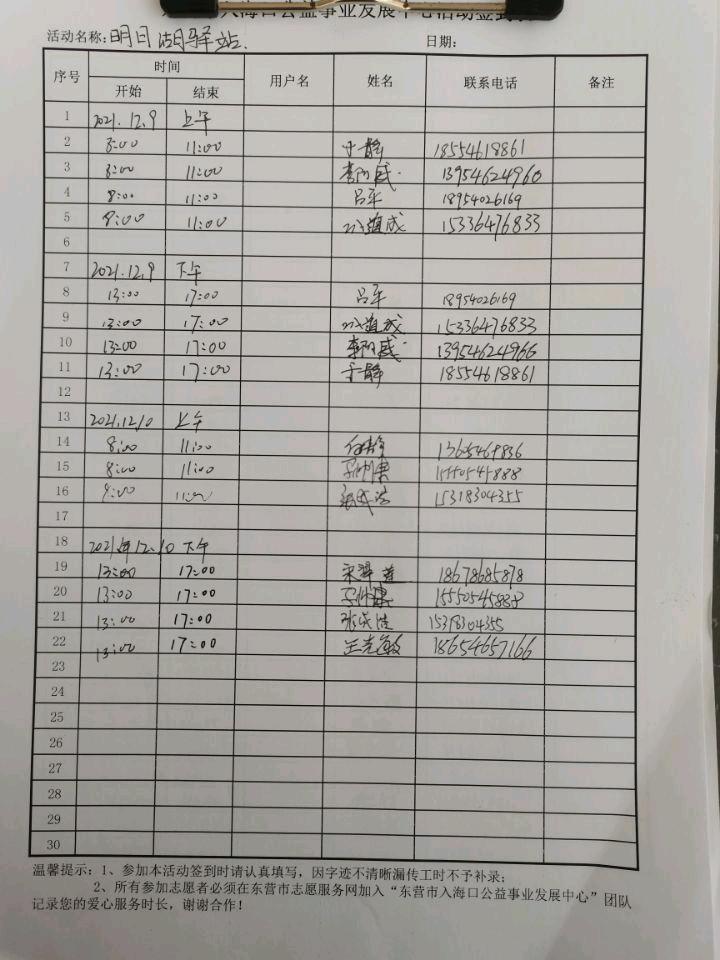 入海口公益事业发展中心活动签到
活动名称:明月湖驿站. 日期:
序号 时间 用户名 姓名 联系电话 备注
开始 结束
1 2021.12.9 上午
2 8:00 11:00 于静 18554618861
3 8:00 11:00 13954624960
4 8:00 11:00 吕军 18954026169
5 8:00 11:00 15336476833
6
7 2021.12.9 下午
8 13:00 17:00 吕军 18954026169
9 13:00 17:00 15336476833
10 13:00 17:00 13954624966
11 13:00 17:00 于静 18554618861
12
13 2021.12.10 上午
14 8:00 11:00
15 8:00 11:00
16 8:00 11:00 15318304355
17
18 2021年12.10 下午
19 13:00 17:00 18678685878
20 13:00 17:00
21 13:00 17:00 张成浩 15318304355
22 13:00 17:00 18654657166
23
24
25
26
27
28
29
30
温馨提示:1、参加本活动签到时请认真填写,因字迹不清晰漏传工时不予补录;
2、所有参加志愿者必须在东营市志愿服务网加入“东营市入海口公益事业发展中心”团队
记录您的爱心服务时长,谢谢合作!